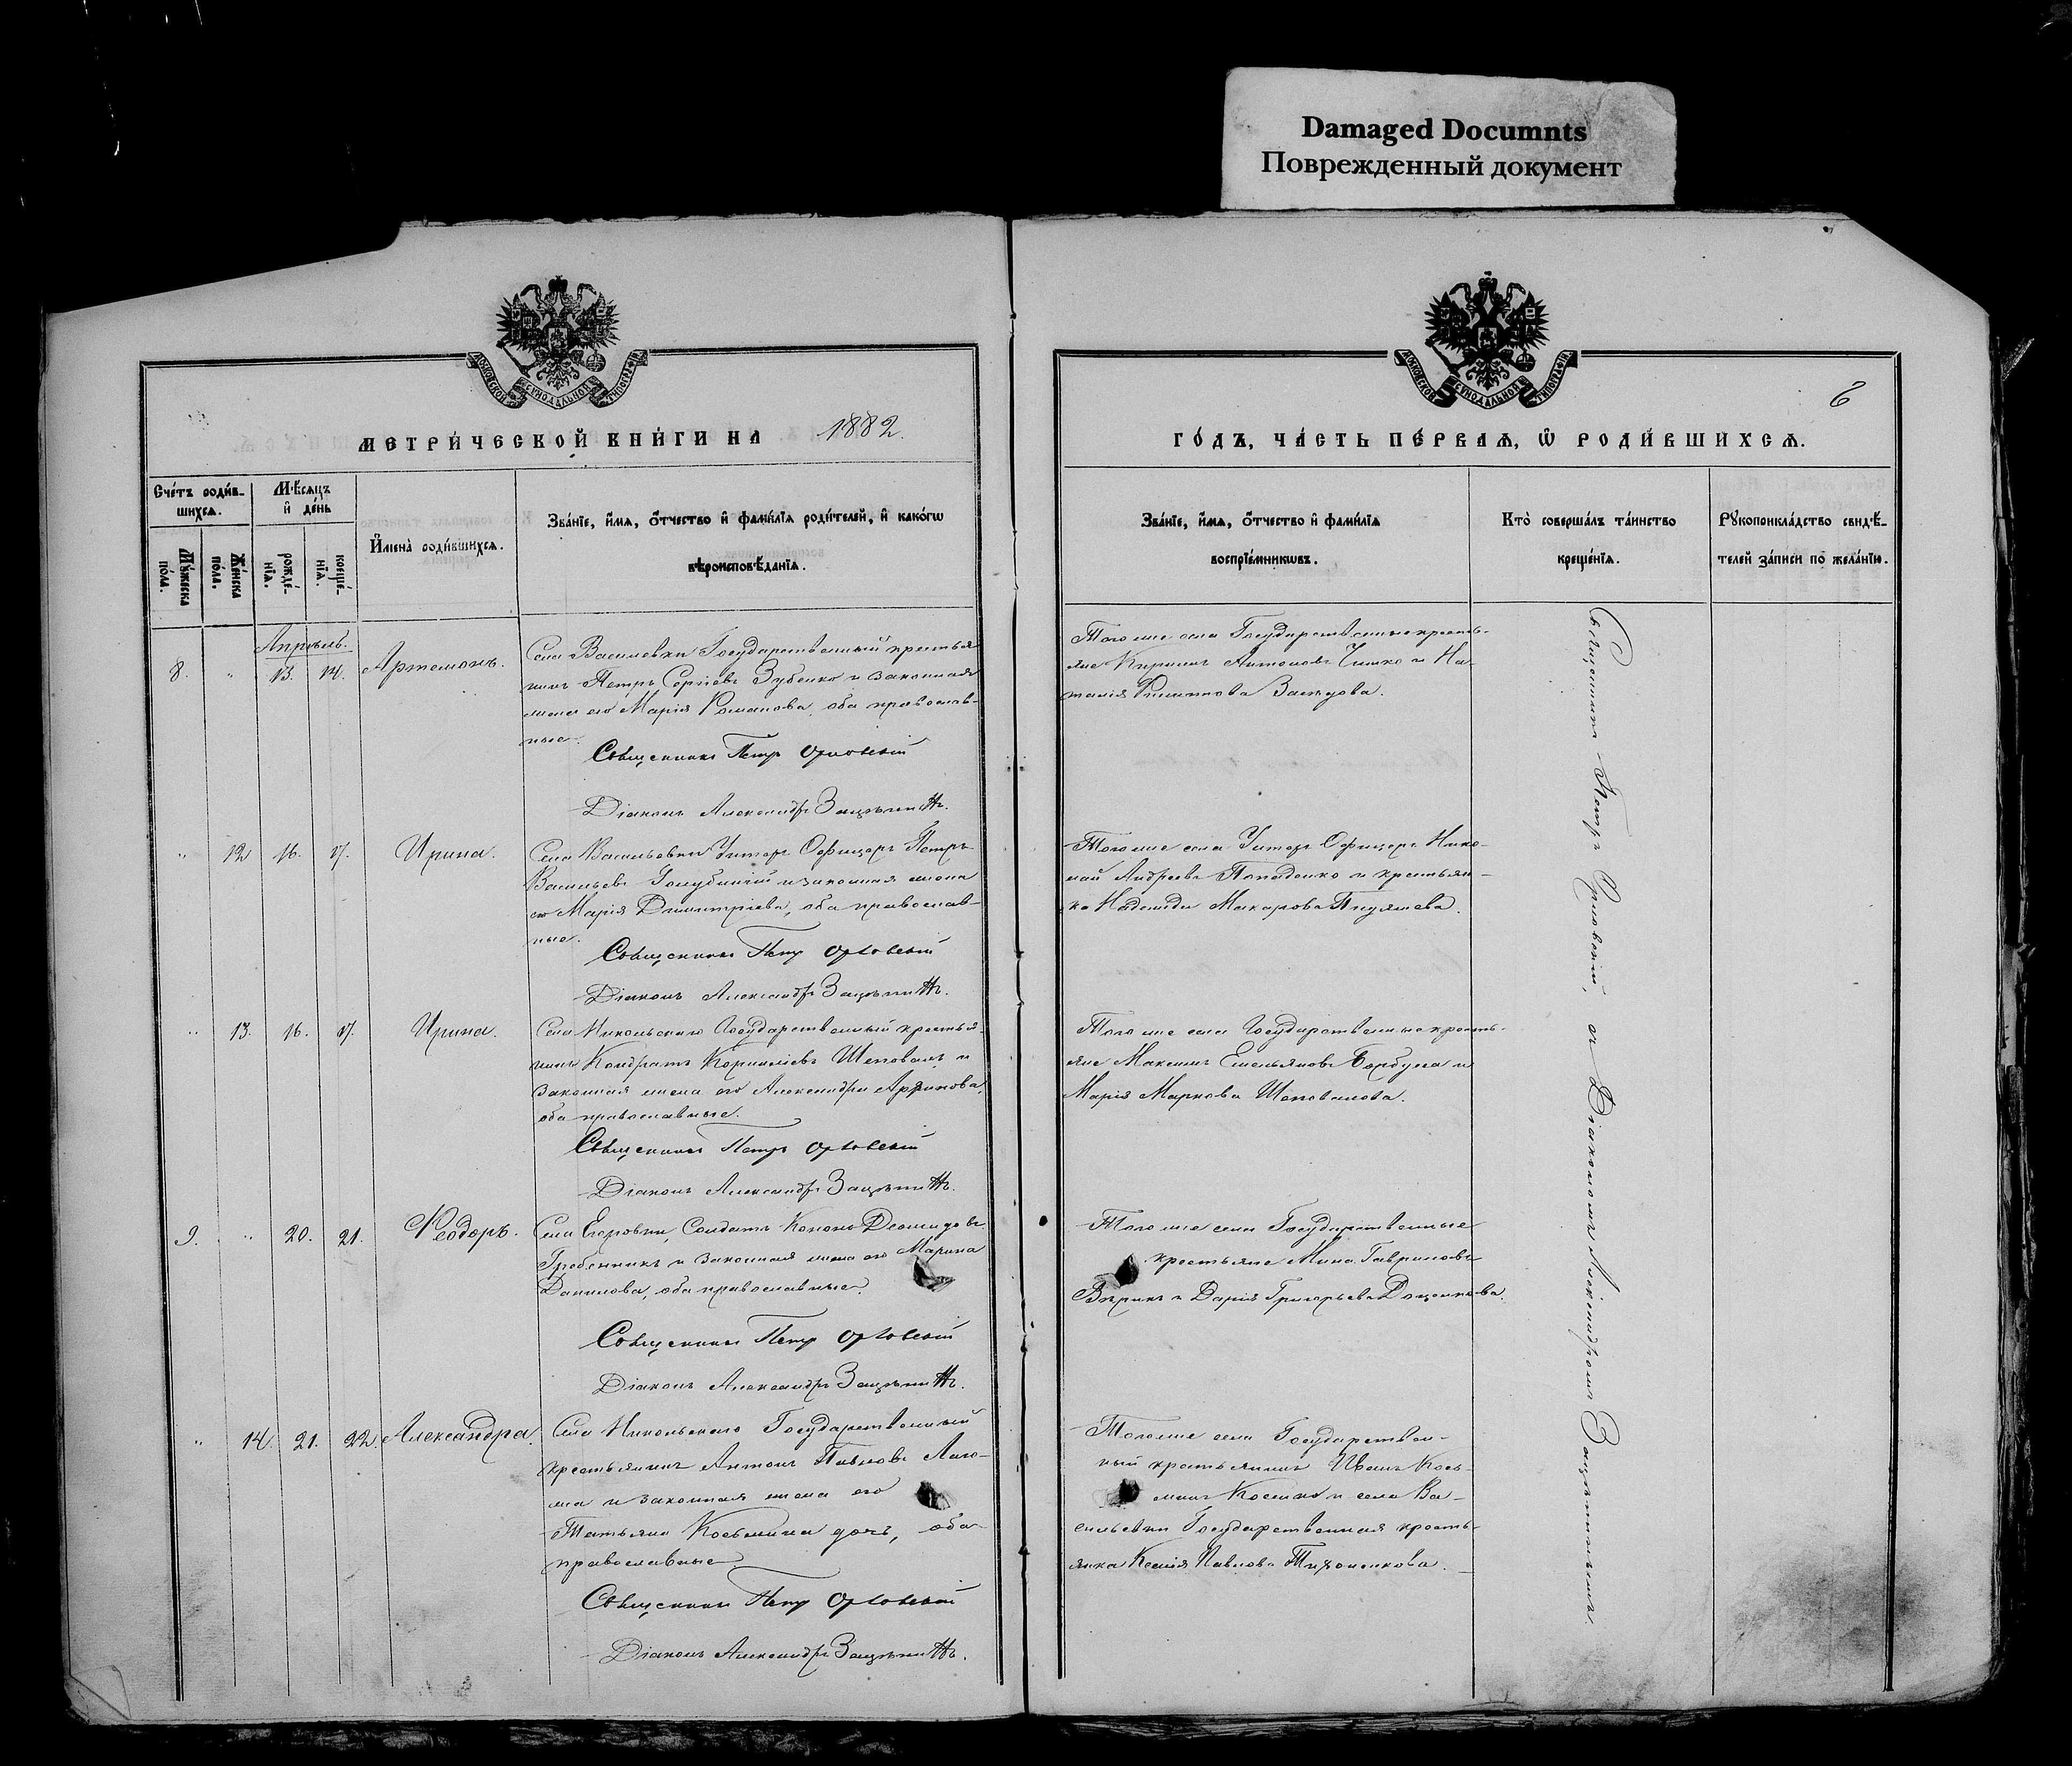 Damaged Documnts
Поврежденный документ
МОСКОВСКОЙ СѴНОДАЛЬНОЙ ТИПОГРАФІИ
МОСКОВСКОЙ СѴНОДАЛЬНОЙ ТИПОГРАФІИ
6
МЕТРИ́ЧЕСКОЙ КНИ́ГИ НА 1882.
ГО́ДЪ, ЧА́СТЬ ПЕ́РВАѦ, Ѡ РОДИ́ВШИХСѦ.
Сче́тъ роди́в-
шихсѧ.
Мꙋ́жеска по́ла.
Же́нска по́ла.
Мѣ́сѧцъ и҆ де́нь
рожде́-
нїѧ.
креще́-
нїѧ.
И҆мена̀ роди́вшихсѧ.
Зва́нїе, и҆́мѧ, ѻ҆́тчество и҆ фами́лїѧ роди́телей, и҆ како́гѡ
вѣроисповѣ́данїѧ.
Зва́нїе, и҆́мѧ, ѻ҆́тчество и҆ фами́лїѧ
воспрїе́мникѡвъ.
Кто̀ соверша́лъ та́инство
креще́нїѧ.
Рꙋкоприкла́дство свидѣ́-
телей за́писи по жела́нїю.
Апрѣль.
8. " 13. 14. Артемонъ.
Села Василевки Государственный крестья
нинъ Петръ Сергіевъ Зубенко и законная
жена его Марія Романова, оба православ-
ные.
Священникъ Петръ Орловскій
Діаконъ Александръ
Тогоже села Государственные кресть-
яне Кириллъ Антоновъ Чишко и На-
талія Филиппова
" 12 16. 17. Ирина.
Села Васильевки Унтеръ Офицеръ Петръ
Васильевъ Голубничій и законная жена
его Марія Димитріева, оба православ-
ные.
Священникъ Петръ Орловскій
Діаконъ Александръ
Тогоже села Унтеръ Офицеръ Нико-
лай Андреевъ Попаденко и крестьян-
ка Надежда Макарова
" 13. 16. 17. Ирина.
Села Никольскаго Государственный крестья-
нинъ Кондратъ Корниліевъ Шаповалъ и
законная жена его Александра
оба православные.
Священникъ Петръ Орловскій
Діаконъ Александръ
Тогоже села Государственные кресть-
яне Максимъ Емельяновъ Барбула и
Марія Маркова Шаповалова.
9. " 20. 21. Ѳеодоръ.
Села Егоровки, Солдатъ Кононъ
Гребенникъ и законная жена его Марина
Данилова, оба православные.
Священникъ Петръ Орловскій
Діаконъ Александръ
Тогоже села Государственные
крестьяне Мина Гавриловъ
и Дарія Григорьева Доценкова.
" 14. 21. 22. Александра.
Села Никольскаго Государственный
крестьянинъ Антонъ Павловъ
и законная жена его
Татьяна Косьмина дочь, оба
православные.
Священникъ Петръ Орловскій
Діаконъ Александръ
Тогоже села Государствен-
ный крестьянинъ Иванъ Кось-
минъ и села Ва-
сильевки Государственная кресть-
янка Ксенія Павлова Тихоненкова.
Священникъ Петръ Орловскій, съ Діакономъ Александромъ